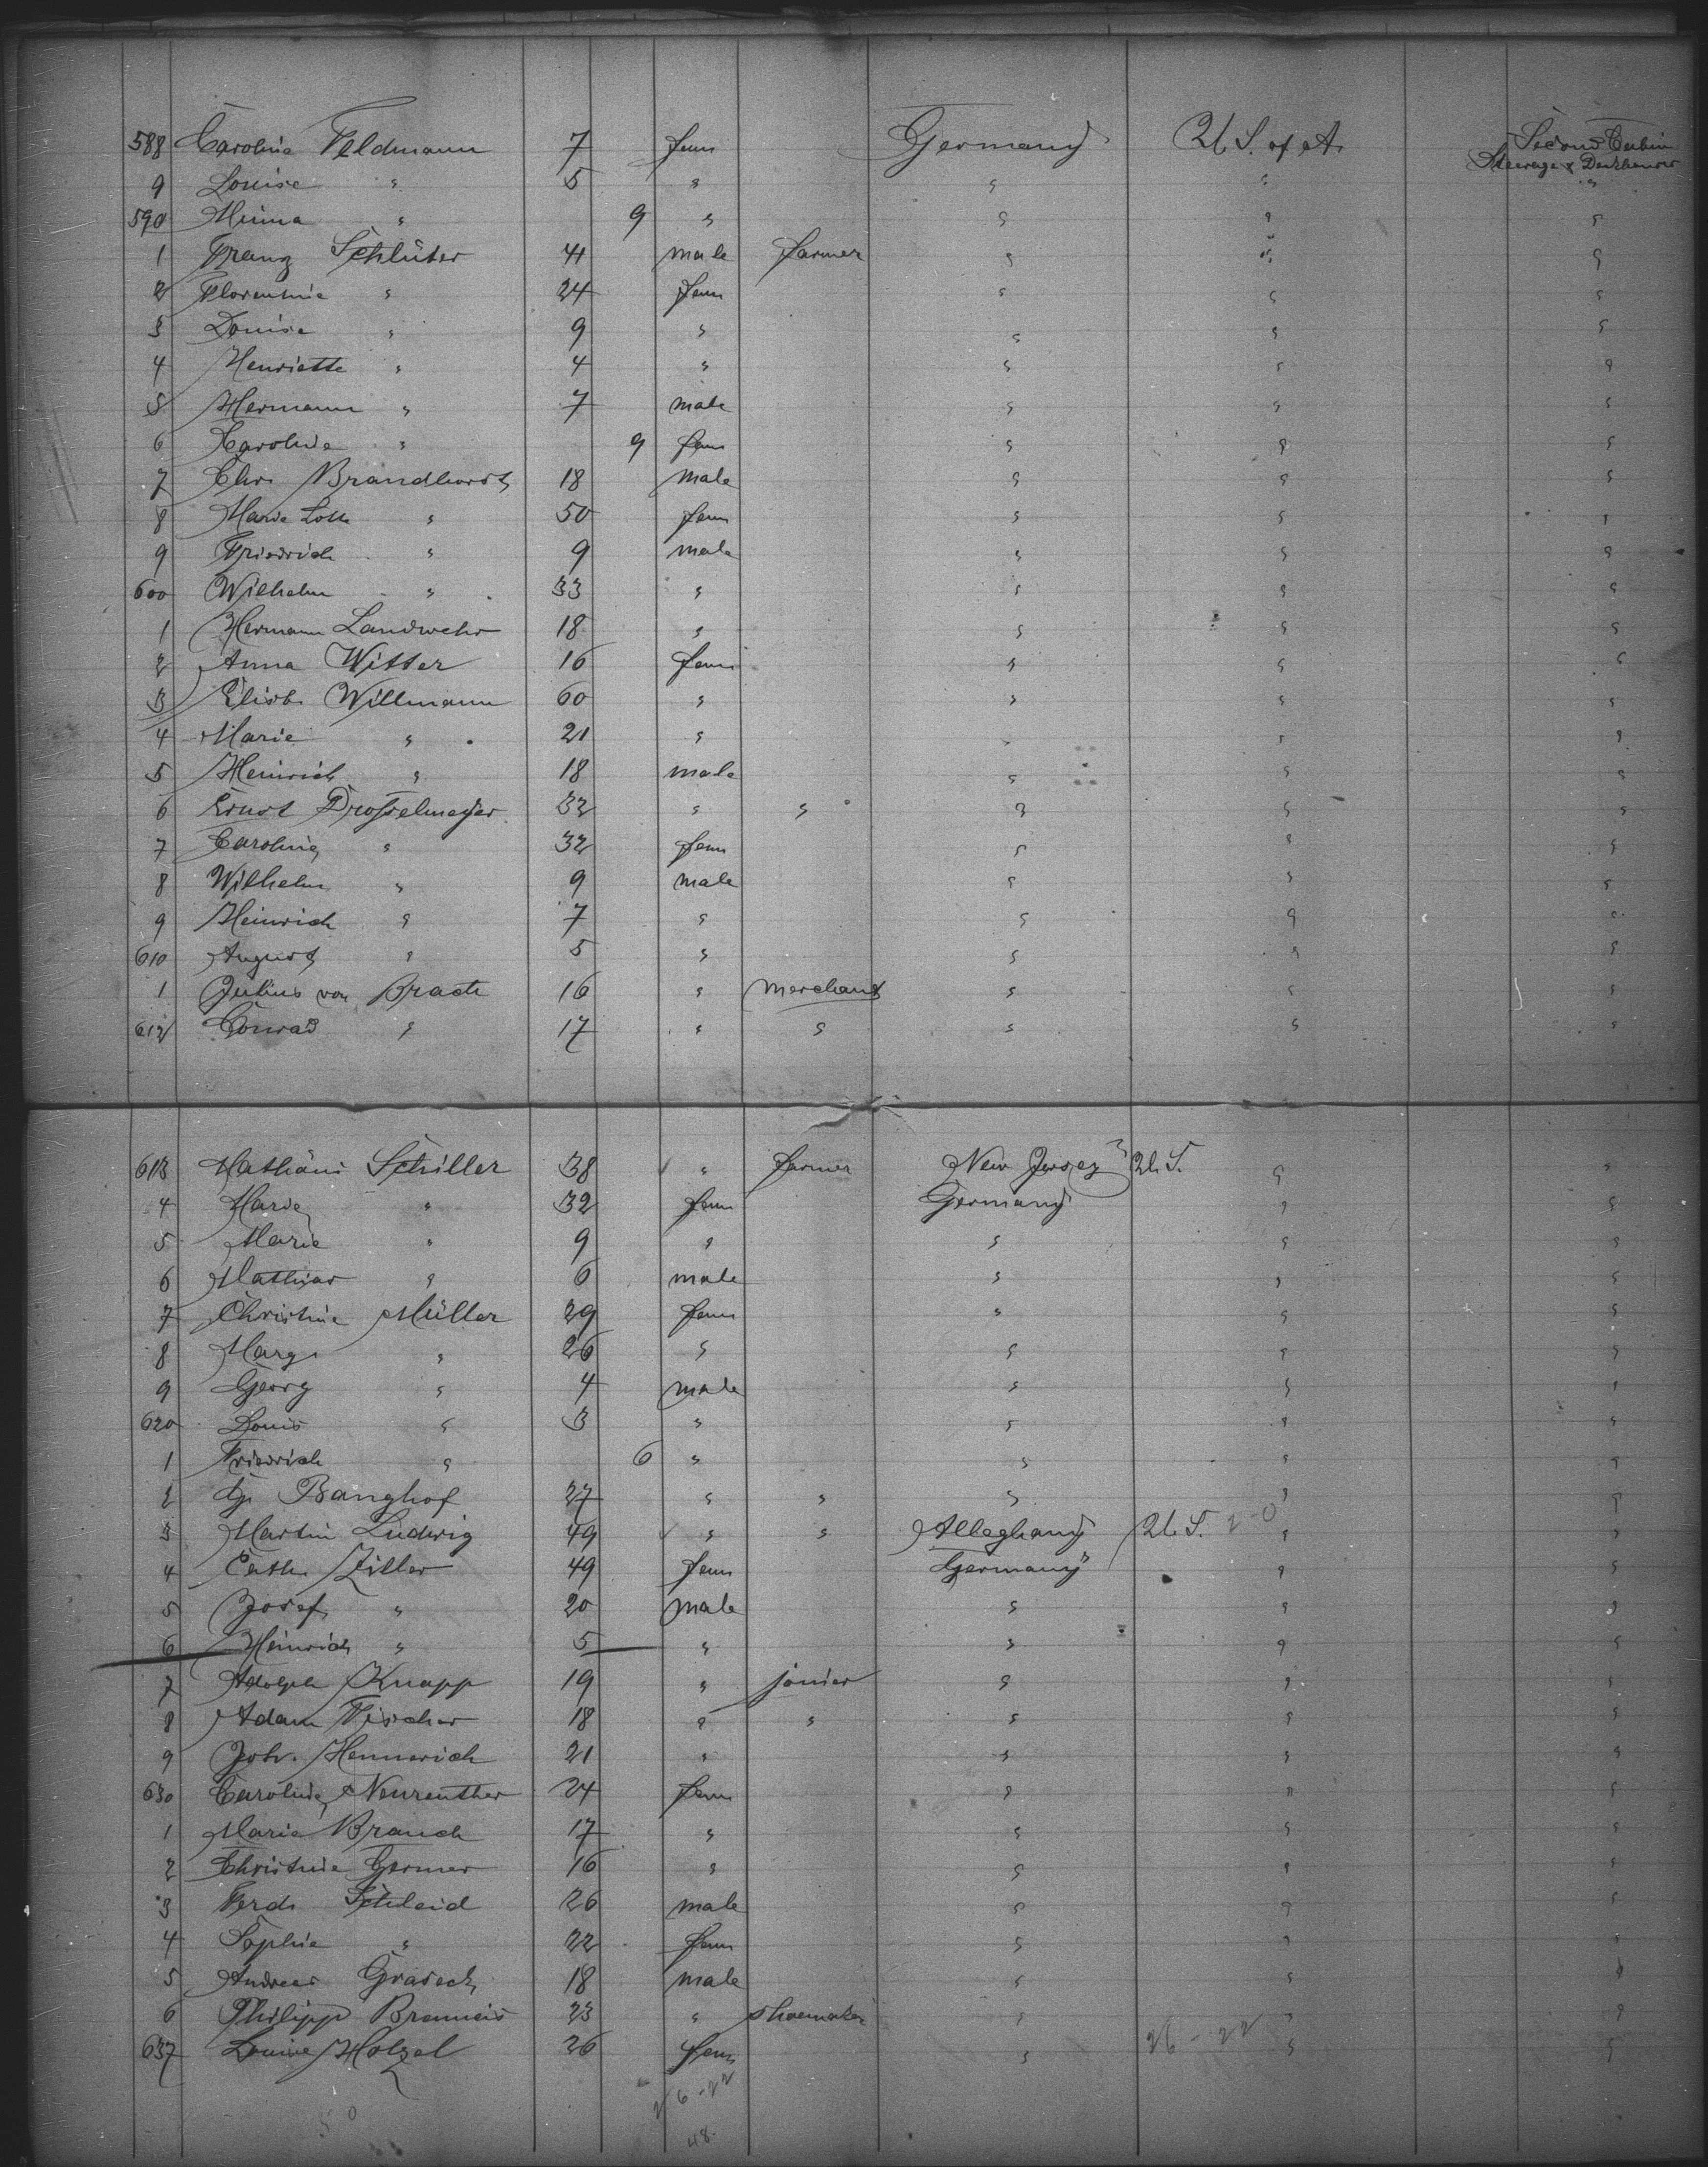 588 Carolina Feldmann 7 fem Germany U. S. of A. Second Cabin
Steerage &
9 Louise " 5 " " " "
590 Minna " 9 " " " "
1 Franz Schlüter 41 male farmer " " "
2 Florentine " 24 fem " " "
3 Louise " 9 " " " "
4 Henriette " 4 " " " "
5 Hermann " 7 male " " "
6 Karoline " 9 fem " " "
7 Chr. Brandhorst 18 male " " "
8 Marie Lotte " 50 fem " " "
9 Friedrich " 9 male " " "
600 Wilhelm " 33 " " " "
1 Hermann Landwehr 18 " " " "
2 Anna Witter 16 fem " " "
3 Elisb. Willmann 60 " " " "
4 Marie " 21 " " " "
5 Heinrich " 18 male " " "
6 Ernst Drosselmeyer 32 " " " " "
7 Caroline " 32 fem " " "
8 Wilhelm " 9 male " " "
9 Heinrich " 7 " " " "
610 August " 5 " " " "
1 Julius von Bracht 16 " merchant " " "
612 Conrad " 17 " " " " "
613 Mathäus Schiller 38 " farmer New Jersey U. S. " "
4 Marie " 32 fem Germany " "
5 Marie " 9 " " " "
6 Mathias " 6 male " " "
7 Christine Müller 29 fem " " "
8 Marg. " 26 " " " "
9 Georg " 4 male " " "
620 Louis " 3 " " " "
1 Friedrich " 6 " " " "
2 Banghof 27 " " " " "
3 Martin Ludwig 49 " " Alleghany U. S. 2-0 " "
4 Cath. Ziller 49 fem Germany " "
5 Josef " 20 male " " "
6 Heinrich " 5 " " " "
7 Adolph Knapp 19 " joiner " " "
8 Adam Fischer 18 " " " " "
9 Joh. Hennerich 21 " " " "
630 Caroline Neureuther 24 fem " " "
1 Marie Brauch 17 " " " "
2 Christine Germer 16 " " " "
3 Ferd. Schleid 26 male " " "
4 Sophie " 22 fem " " "
5 Andreas Graseck 18 male " " "
6 Philipp 23 " shoemaker " " "
637 Louise Holzel 26 fem " 26-22 " "
26-22
50
48